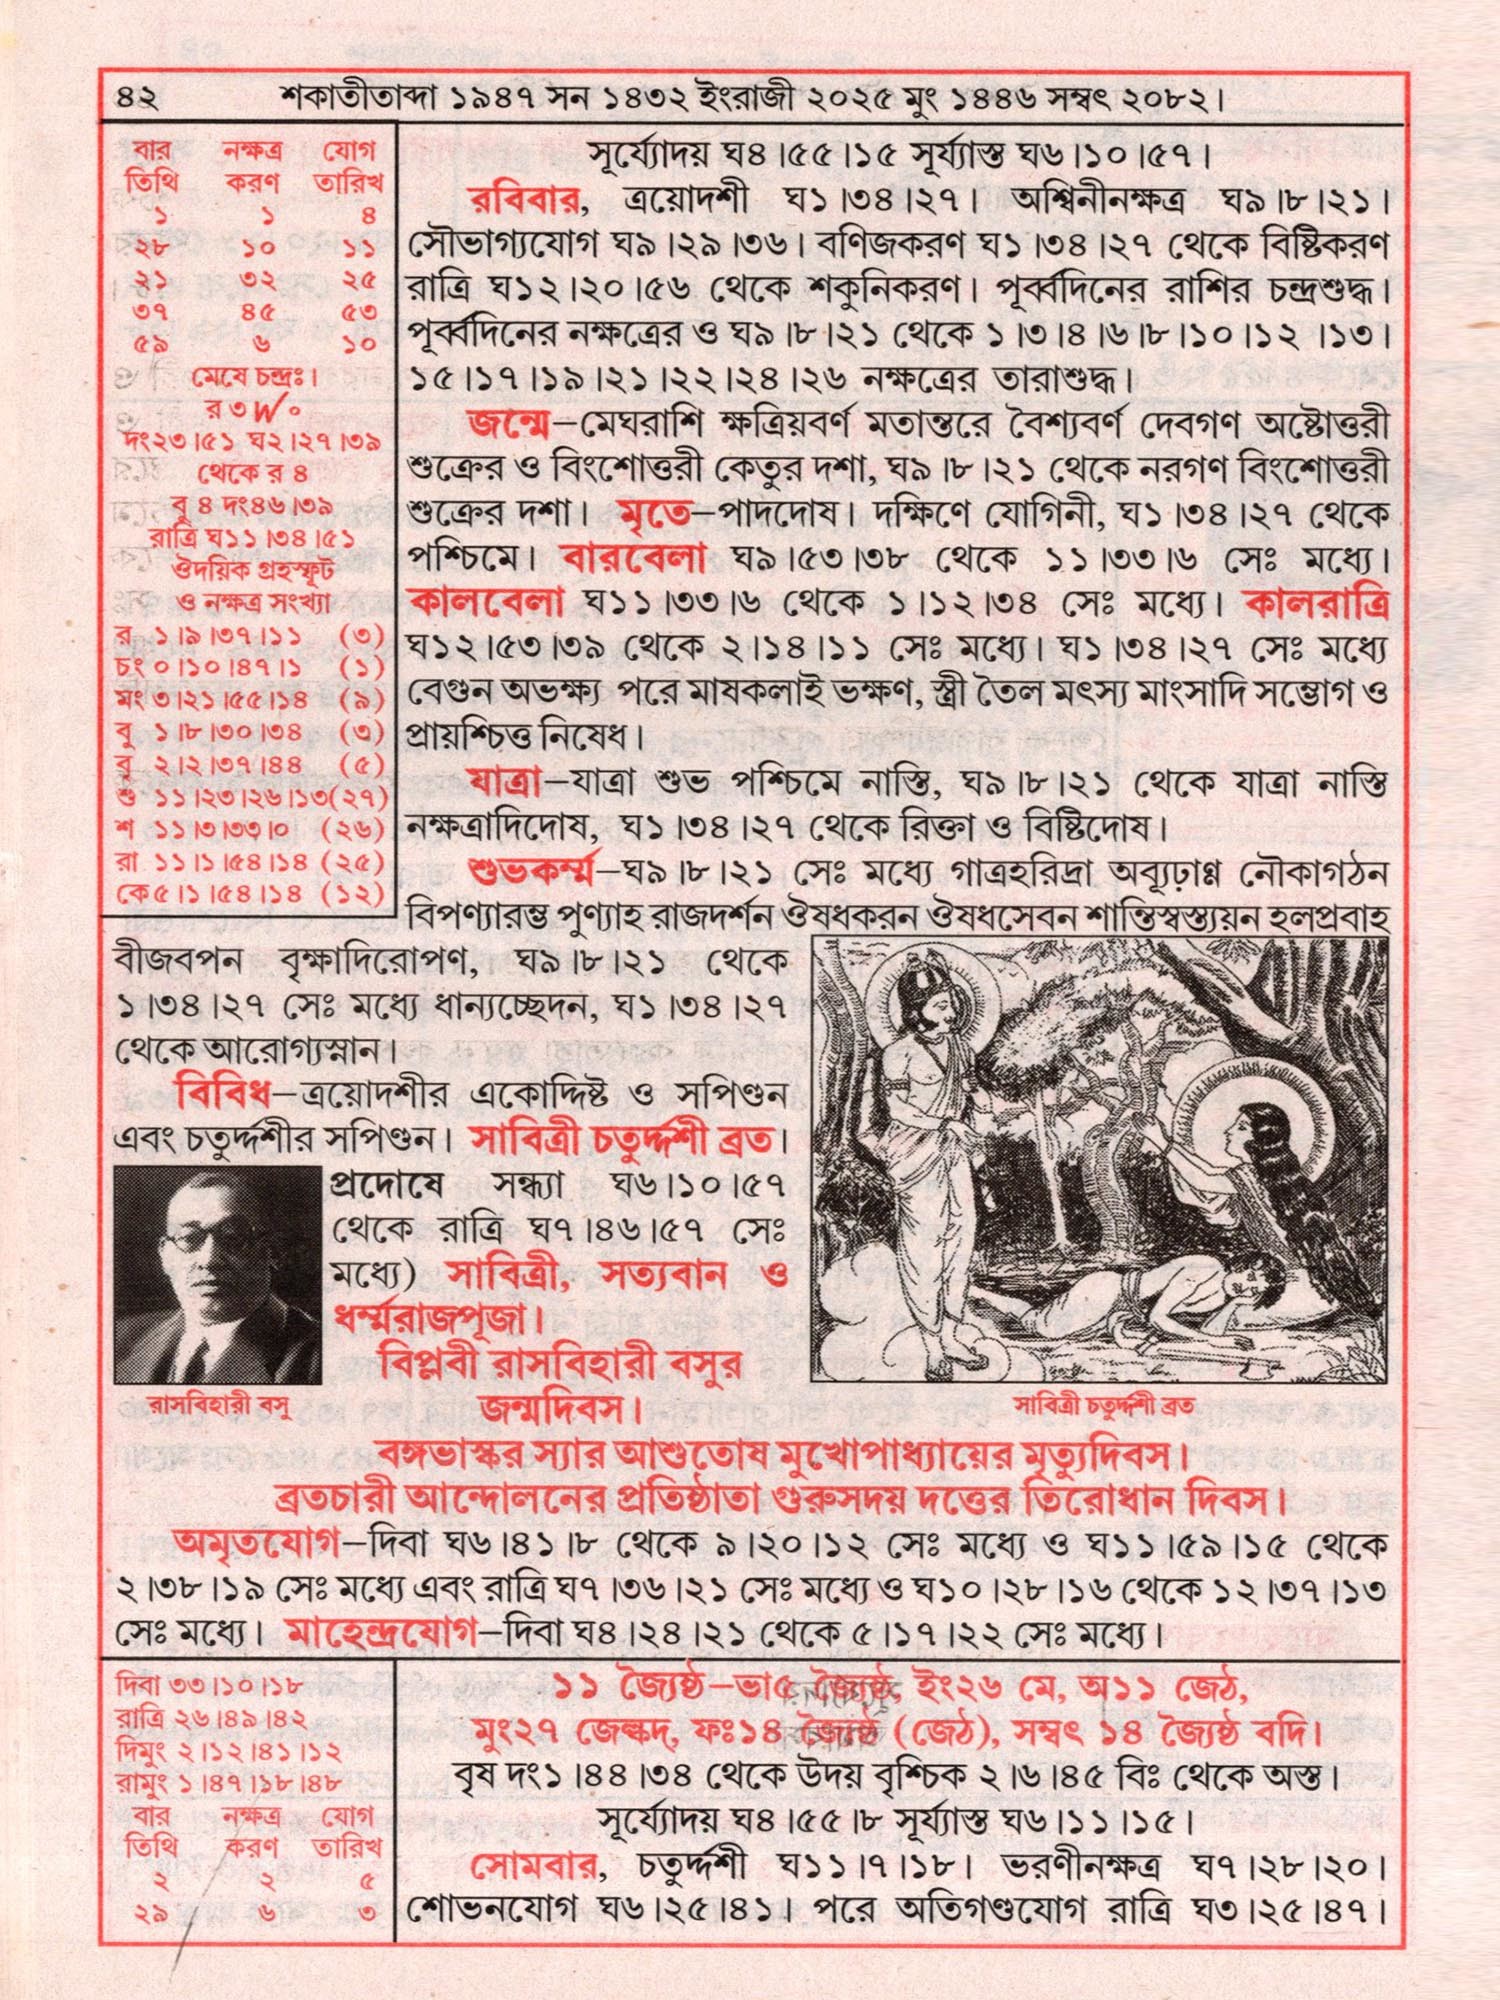 ৪২ শকাতীতাব্দা ১৯৪৭ সন ১৪৩২ ইংরাজী ২০২৫ মুং ১৪৪৬ সম্বৎ ২০৮২।
বার নক্ষত্র যোগ
তিথি করণ তারিখ
১ ১ ৪
২৮ ১০ ১১
২১ ৩২ ২৫
৩৭ ৪৫ ৫৩
৫৯ ৬ ১০
মেষে চন্দ্রঃ।
র ৩
দং২৩।৫১ ঘ২।২৭।৩৯
থেকে র ৪
বু ৪ দং৪৬।৩৯
রাত্রি ঘ১১।৩৪।৫১
ঔদয়িক গ্রহস্ফূট
ও নক্ষত্র সংখ্যা
র ১।৯।৩৭।১১ (৩)
চং ০।১০।৪৭।১ (১)
মং ৩।২১।৫৫।১৪ (৯)
বু ১।৮।৩০।৩৪ (৩)
বৃ ২।২।৩৭।৪৪ (৫)
শু ১১।২৩।২৬।১৩(২৭)
শ ১১।৩।৩৩।০ (২৬)
রা ১১।১।৫৪।১৪ (২৫)
কে৫।১।৫৪।১৪ (১২)
সূর্য্যোদয় ঘ৪।৫৫।১৫ সূর্য্যাস্ত ঘ৬।১০।৫৭।
রবিবার, ত্রয়োদশী ঘ১।৩৪।২৭। অশ্বিনীনক্ষত্র ঘ৯।৮।২১।
সৌভাগ্যযোগ ঘ৯।২৯।৩৬। বণিজকরণ ঘ১।৩৪।২৭ থেকে বিষ্টিকরণ
রাত্রি ঘ১২।২০।৫৬ থেকে শকুনিকরণ। পূর্ব্বদিনের রাশির চন্দ্রশুদ্ধ।
পূর্ব্বদিনের নক্ষত্রের ও ঘ৯।৮।২১ থেকে ১।৩।৪।৬।৮।১০।১২।১৩।
১৫।১৭।১৯।২১।২২।২৪।২৬ নক্ষত্রের তারাশুদ্ধ।
জন্মে–মেঘরাশি ক্ষত্রিয়বর্ণ মতান্তরে বৈশ্যবর্ণ দেবগণ অষ্টোত্তরী
শুক্রের ও বিংশোত্তরী কেতুর দশা, ঘ৯।৮।২১ থেকে নরগণ বিংশোত্তরী
শুক্রের দশা। মৃতে–পাদদোষ। দক্ষিণে যোগিনী, ঘ১।৩৪।২৭ থেকে
পশ্চিমে। বারবেলা ঘ৯।৫৩।৩৮ থেকে ১১।৩৩।৬ সেঃ মধ্যে।
কালবেলা ঘ১১।৩৩।৬ থেকে ১।১২।৩৪ সেঃ মধ্যে। কালরাত্রি
ঘ১২।৫৩।৩৯ থেকে ২।১৪।১১ সেঃ মধ্যে। ঘ১।৩৪।২৭ সেঃ মধ্যে
বেগুন অভক্ষ্য পরে মাষকলাই ভক্ষণ, স্ত্রী তৈল মৎস্য মাংসাদি সম্ভোগ ও
প্রায়শ্চিত্ত নিষেধ।
যাত্রা–যাত্রা শুভ পশ্চিমে নাস্তি, ঘ৯।৮।২১ থেকে যাত্রা নাস্তি
নক্ষত্রাদিদোষ, ঘ১।৩৪।২৭ থেকে রিক্তা ও বিষ্টিদোষ।
শুভকর্ম্ম–ঘ৯।৮।২১ সেঃ মধ্যে গাত্রহরিদ্রা অব্যূঢ়ান্ন নৌকাগঠন
বিপণ্যারম্ভ পুণ্যাহ রাজদর্শন ঔষধকরন ঔষধসেবন শান্তিস্বস্ত্যয়ন হলপ্রবাহ
বীজবপন বৃক্ষাদিরোপণ, ঘ৯।৮।২১ থেকে
১।৩৪।২৭ সেঃ মধ্যে ধান্যচ্ছেদন, ঘ১।৩৪।২৭
থেকে আরোগ্যস্নান।
বিবিধ–ত্রয়োদশীর একোদ্দিষ্ট ও সপিণ্ডন
এবং চতুর্দ্দশীর সপিণ্ডন। সাবিত্রী চতুর্দ্দশী ব্রত।
প্রদোষে সন্ধ্যা ঘ৬।১০।৫৭
থেকে রাত্রি ঘ৭।৪৬।৫৭ সেঃ
মধ্যে) সাবিত্রী, সত্যবান ও
ধর্ম্মরাজপূজা।
বিপ্লবী রাসবিহারী বসুর
জন্মদিবস।
রাসবিহারী বসু
সাবিত্রী চতুর্দ্দশী ব্রত
বঙ্গভাস্কর স্যার আশুতোষ মুখোপাধ্যায়ের মৃত্যুদিবস।
ব্রতচারী আন্দোলনের প্রতিষ্ঠাতা গুরুসদয় দত্তের তিরোধান দিবস।
অমৃতযোগ–দিবা ঘ৬।৪১।৮ থেকে ৯।২০।১২ সেঃ মধ্যে ও ঘ১১।৫৯।১৫ থেকে
২।৩৮।১৯ সেঃ মধ্যে এবং রাত্রি ঘ৭।৩৬।২১ সেঃ মধ্যে ও ঘ১০।২৮।১৬ থেকে ১২।৩৭।১৩
সেঃ মধ্যে। মাহেন্দ্রযোগ–দিবা ঘ৪।২৪।২১ থেকে ৫।১৭।২২ সেঃ মধ্যে।
দিবা ৩৩।১০।১৮
রাত্রি ২৬।৪৯।৪২
দিমুং ২।১২।৪১।১২
রামুং ১।৪৭।১৮।৪৮
বার নক্ষত্র যোগ
তিথি করণ তারিখ
২ ২ ৫
২৯ ৬ ৩
১১ জ্যৈষ্ঠ–ভা৫ জ্যৈষ্ঠ, ইং২৬ মে, অ১১ জেঠ,
মুং২৭ জেল্কদ, ফঃ১৪ জ্যৈষ্ঠ (জেঠ), সম্বৎ ১৪ জ্যৈষ্ঠ বদি।
বৃষ দং১।৪৪।৩৪ থেকে উদয় বৃশ্চিক ২।৬।৪৫ বিঃ থেকে অস্ত।
সূর্য্যোদয় ঘ৪।৫৫।৮ সূর্য্যাস্ত ঘ৬।১১।১৫।
সোমবার, চতুর্দ্দশী ঘ১১।৭।১৮। ভরণীনক্ষত্র ঘ৭।২৮।২০।
শোভনযোগ ঘ৬।২৫।৪১। পরে অতিগণ্ডযোগ রাত্রি ঘ৩।২৫।৪৭।